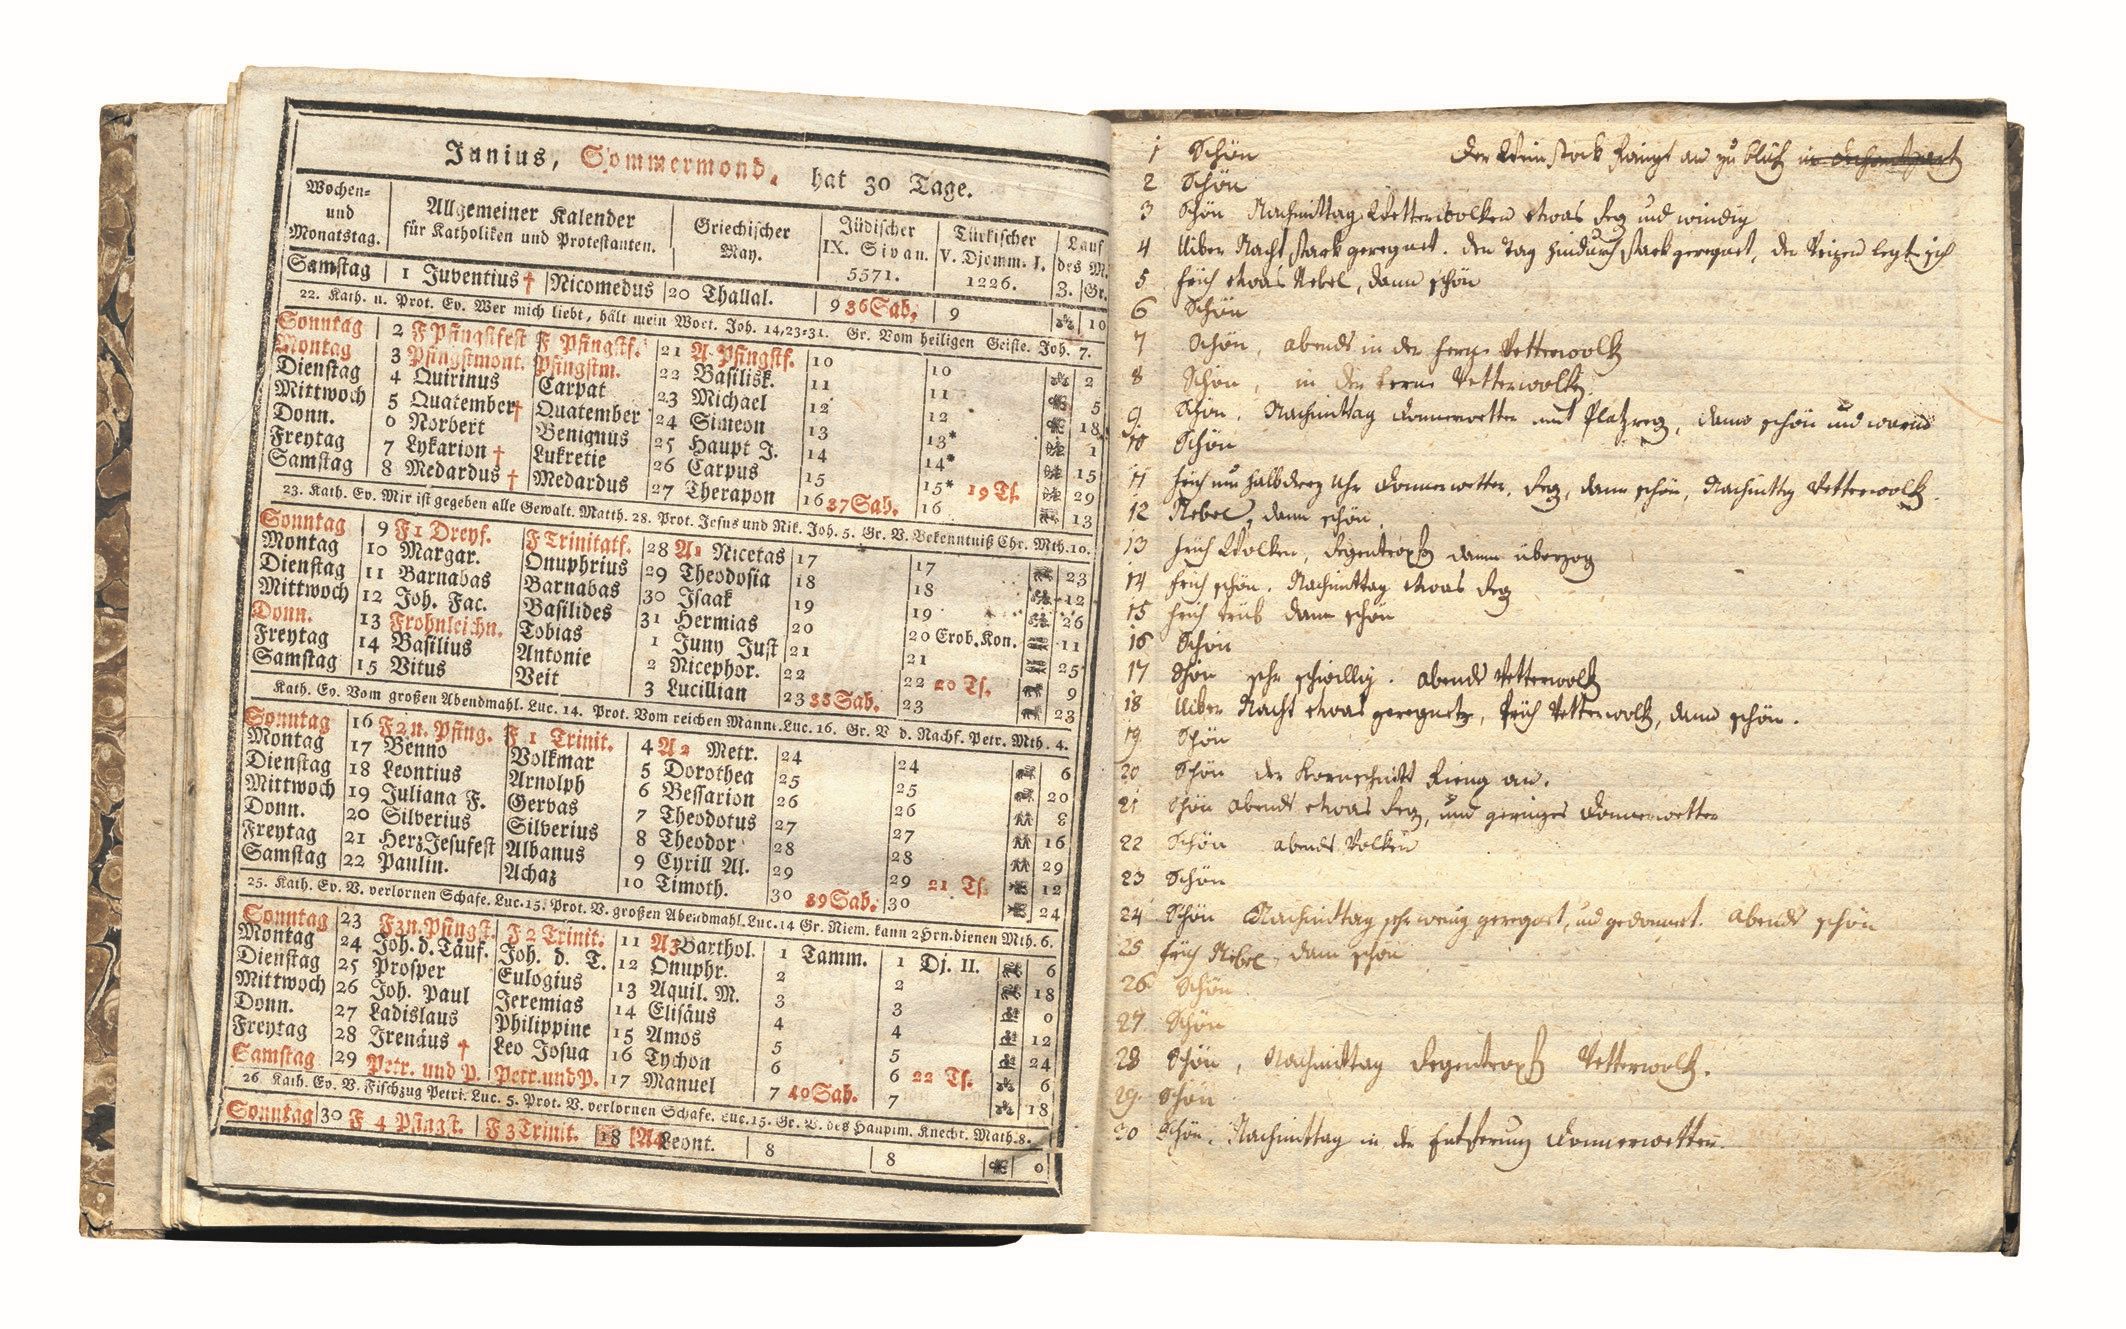 Junius, Sommermond, hat 30 Tage.
Wochen- und Monatstag. | Allgemeiner Kalender für Katholiken und Protestanten. | Griechischer May. | Jüdischer IX. Sivan. 5571. | Türkischer V. Djemm. I. 1226. | Lauf des M. Z. Gr.
Samstag 1 Juventius † Nicomedus 20 Thallal. 9 36 Sab. 9 10
22. Kath. u. Prot. Ev. Wer mich liebt, hält mein Wort. Joh. 14, 23-31. Gr. Vom heiligen Geiste. Joh. 7.
Sonntag 2 F Pfingstfest F Pfingstf. 21 A. Pfingstf. 10 10 2
Montag 3 Pfingstmont. Pfingstm. 22 Basilisk. 11 11 5
Dienstag 4 Quirinus Carpat 23 Michael 12 12 18
Mittwoch 5 Quatember † Quatember 24 Simeon 13 13* 1
Donn. 6 Norbert Benignus 25 Haupt J. 14 14* 15
Freytag 7 Lykarion † Lukretie 26 Carpus 15 15* 19 Ts. 29
Samstag 8 Medardus † Medardus 27 Therapon 16 37 Sab. 16 13
23. Kath. Ev. Mir ist gegeben alle Gewalt. Matth. 28. Prot. Jesus und Nik. Joh. 5. Gr. V. Bekenntniß Chr. Mth. 10.
Sonntag 9 F 1 Dreyf. F Trinitatf. 28 A 1 Nicetas 17 17 23
Montag 10 Margar. Onuphrius 29 Theodosia 18 18 12
Dienstag 11 Barnabas Barnabas 30 Isaak 19 19 26
Mittwoch 12 Joh. Fac. Basilides 31 Hermias 20 20 Erob. Kon. 11
Donn. 13 Frohnleichn. Tobias 1 Juny Just 21 21 25
Freytag 14 Basilius Antonie 2 Nicephor. 22 22 20 Ts. 9
Samstag 15 Vitus Veit 3 Lucillian 23 38 Sab. 23 23
Kath. Ev. Vom großen Abendmahl. Luc. 14. Prot. Vom reichen Mann. Luc. 16. Gr. V d. Nachf. Petr. Mth. 4.
Sonntag 16 F 2 n. Pfing. F 1 Trinit. 4 A 2 Metr. 24 24 6
Montag 17 Benno Volkmar 5 Dorothea 25 25 20
Dienstag 18 Leontius Arnolph 6 Bessarion 26 26 8
Mittwoch 19 Juliana F. Gervas 7 Theodotus 27 27 16
Donn. 20 Silverius Silverius 8 Theodor 28 28 29
Freytag 21 Herz Jesufest Albanus 9 Cyrill Al. 29 29 21 Ts. 12
Samstag 22 Paulin. Achaz 10 Timoth. 30 39 Sab. 30 24
25. Kath. Ev. V. verlornen Schafe. Luc. 15. Prot. V. großen Abendmahl. Luc. 14 Gr. Niem. kann 2 Hrn. dienen Mth. 6.
Sonntag 23 F 3 n. Pfingst. F 2 Trinit. 11 A 3 Barthol. 1 Tamm. 1 Dj. II. 6
Montag 24 Joh. d. Täuf. Joh. d. T. 12 Onuphr. 2 2 18
Dienstag 25 Prosper Eulogius 13 Aquil. M. 3 3 0
Mittwoch 26 Joh. Paul Jeremias 14 Elisäus 4 4 12
Donn. 27 Ladislaus Philippine 15 Amos 5 5 24
Freytag 28 Irenäus † Leo Josua 16 Tychon 6 6 22 Ts. 6
Samstag 29 Petr. und P. Petr. und P. 17 Manuel 7 40 Sab. 7 18
26. Kath. Ev. V. Fischzug Petri. Luc. 5. Prot. V. verlornen Schafe. Luc. 15. Gr. V. des Hauptm. Knecht. Math. 8.
Sonntag 30 F 4 Pfingst. F 3 Trinit. 18 A 4 Leont. 8 8 0
1 Schön Der Weinstock fangt an zu blüh
2 Schön
3 Schön Nachmittag Wetterwolken etwas Reg und windig
4 Uiber Nacht stark geregnet. den Tag hindurch stark geregnet, der Weizen legte sich
5 früh etwas Nebel, dann schön
6 Schön
7 Schön, abends in der ferne Wetterwolk
8 Schön, in der ferne Wetterwolk
9 Schön. Nachmittag Donnerwetter mit Platzreg, dann schön und warm
10 Schön
11 früh um halb drey Uhr Donnerwetter, Reg, dann schön, Nachmittag Wetterwolk.
12 Nebel, dann schön.
13 früh Wolken, Regentropf dann überzog
14 früh schön. Nachmittag etwas Reg
15 früh trüb dann schön
16 Schön
17 Schön sehr schwillig. abends Wetterwolk
18 Uiber Nacht etwas geregnet, früh Wetterwolk, dann schön.
19 Schön
20 Schön der Kornschnitt fieng an.
21 Schön abends etwas Reg, und geringes Donnerwetter
22 Schön abends Wolken
23 Schön
24 Schön Nachmittag sehr wenig geregnet, und gedonnert. abends schön
25 früh Nebel, dann schön
26 Schön
27 Schön
28 Schön, Nachmittag Regentropf Wetterwolk.
29 Schön
30 Schön. Nachmittag in der Entfernung Donnerwetter.